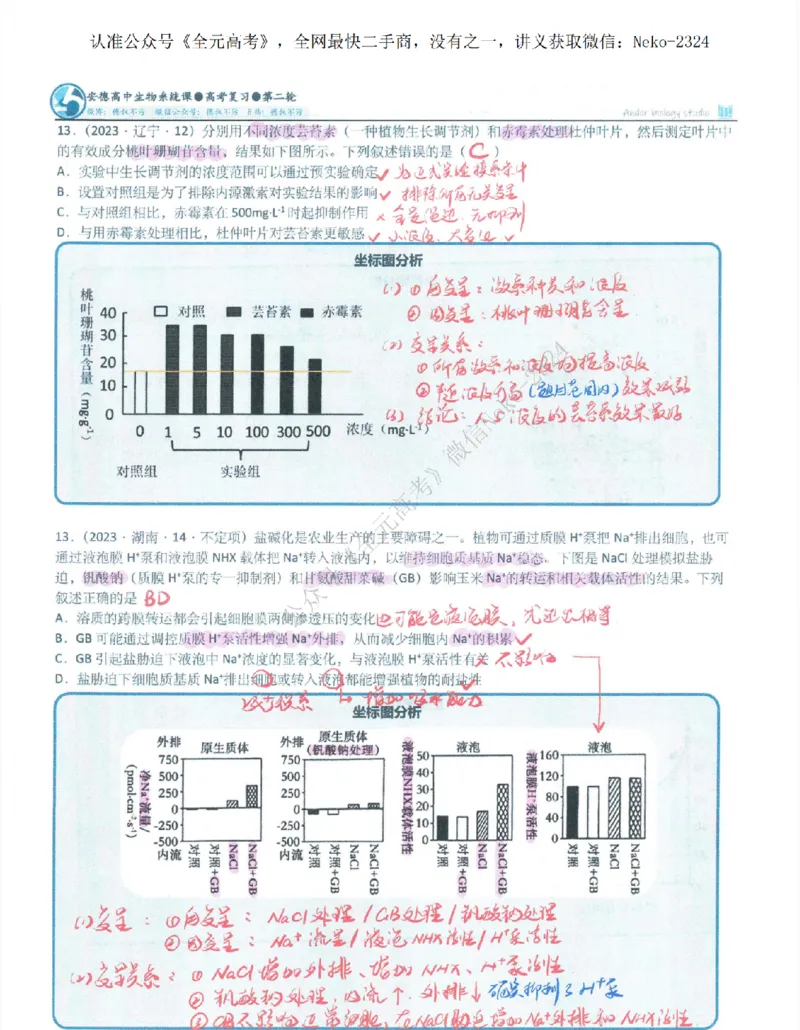 认准公众号《全元高考》，全网最快二手商，没有之一，讲义获取微信：Neko-2324
安德高中生物系统课●高考复习●第二轮
Andor biology studio
13.（2023·辽宁·12）分别用不同浓度芸苔素（一种植物生长调节剂）和赤霉素处理杜仲叶片，然后测定叶片中
的有效成分桃叶珊瑚苷含量，结果如下图所示。下列叙述错误的是（ C ）
A．实验中生长调节剂的浓度范围可以通过预实验确定✓ 为正式实验摸索条件
B．设置对照组是为了排除内源激素对实验结果的影响✓ 排除所有无关变量
C．与对照组相比，赤霉素在 500mg·L⁻¹时起抑制作用 × 全是促进，无抑制
D．与用赤霉素处理相比，杜仲叶片对芸苔素更敏感✓ 小浓度，大变化 ✓
坐标图分析
桃叶珊瑚苷含量（mg·g⁻¹）
对照 芸苔素 赤霉素
40
30
20
10
0
0 1 5 10 100 300 500 浓度（mg·L⁻¹）
对照组 实验组
(1) ①自变量：激素种类和浓度
②因变量：桃叶珊瑚苷含量
(2) 变量关系：
①所有激素和浓度均提高浓度
②随浓度升高（范围内）效果减弱
(3) 结论：浓度的芸苔素效果最好
微信Neko-2324
13.（2023·湖南·14·不定项）盐碱化是农业生产的主要障碍之一。植物可通过质膜 H⁺泵把 Na⁺排出细胞，也可
通过液泡膜 H⁺泵和液泡膜 NHX 载体把 Na⁺转入液泡内，以维持细胞质基质 Na⁺稳态。下图是 NaCl 处理模拟盐胁
迫，钒酸钠（质膜 H⁺泵的专一抑制剂）和甘氨酸甜菜碱（GB）影响玉米 Na⁺的转运和相关载体活性的结果。下列
叙述正确的是 BD
A．溶质的跨膜转运都会引起细胞膜两侧渗透压的变化 也可能是液泡膜，
B．GB 可能通过调控质膜 H⁺泵活性增强 Na⁺外排，从而减少细胞内 Na⁺的积累✓
C．GB 引起盐胁迫下液泡中 Na⁺浓度的显著变化，与液泡膜 H⁺泵活性有关× 不影响
D．盐胁迫下细胞质基质 Na⁺排出细胞或转入液泡都能增强植物的耐盐性✓
减少积累 增加吸水能力
坐标图分析
净Na⁺流量/(pmol·cm⁻²·s⁻¹)
外排 原生质体
750
500
250
0
-250
-500
内流 对照 对照+GB NaCl NaCl+GB
外排 原生质体（钒酸钠处理）
750
500
250
0
-250
-500
内流 对照 对照+GB NaCl NaCl+GB
液泡膜NHX载体活性
液泡
50
40
30
20
10
0
对照 对照+GB NaCl NaCl+GB
液泡膜H⁺泵活性
液泡
160
120
80
40
0
对照 对照+GB NaCl NaCl+GB
(1)变量：①自变量：NaCl处理/GB处理/钒酸钠处理
②因变量：Na⁺流量/液泡NHX活性/H⁺泵活性
(2)变量关系：①NaCl增加外排、增加NHX、H⁺泵活性
②钒酸钠处理，内流↑，外排↓ 钒酸抑制了H⁺泵
③GB不影响正常细胞，在NaCl胁迫增加Na⁺外排和NHX活性